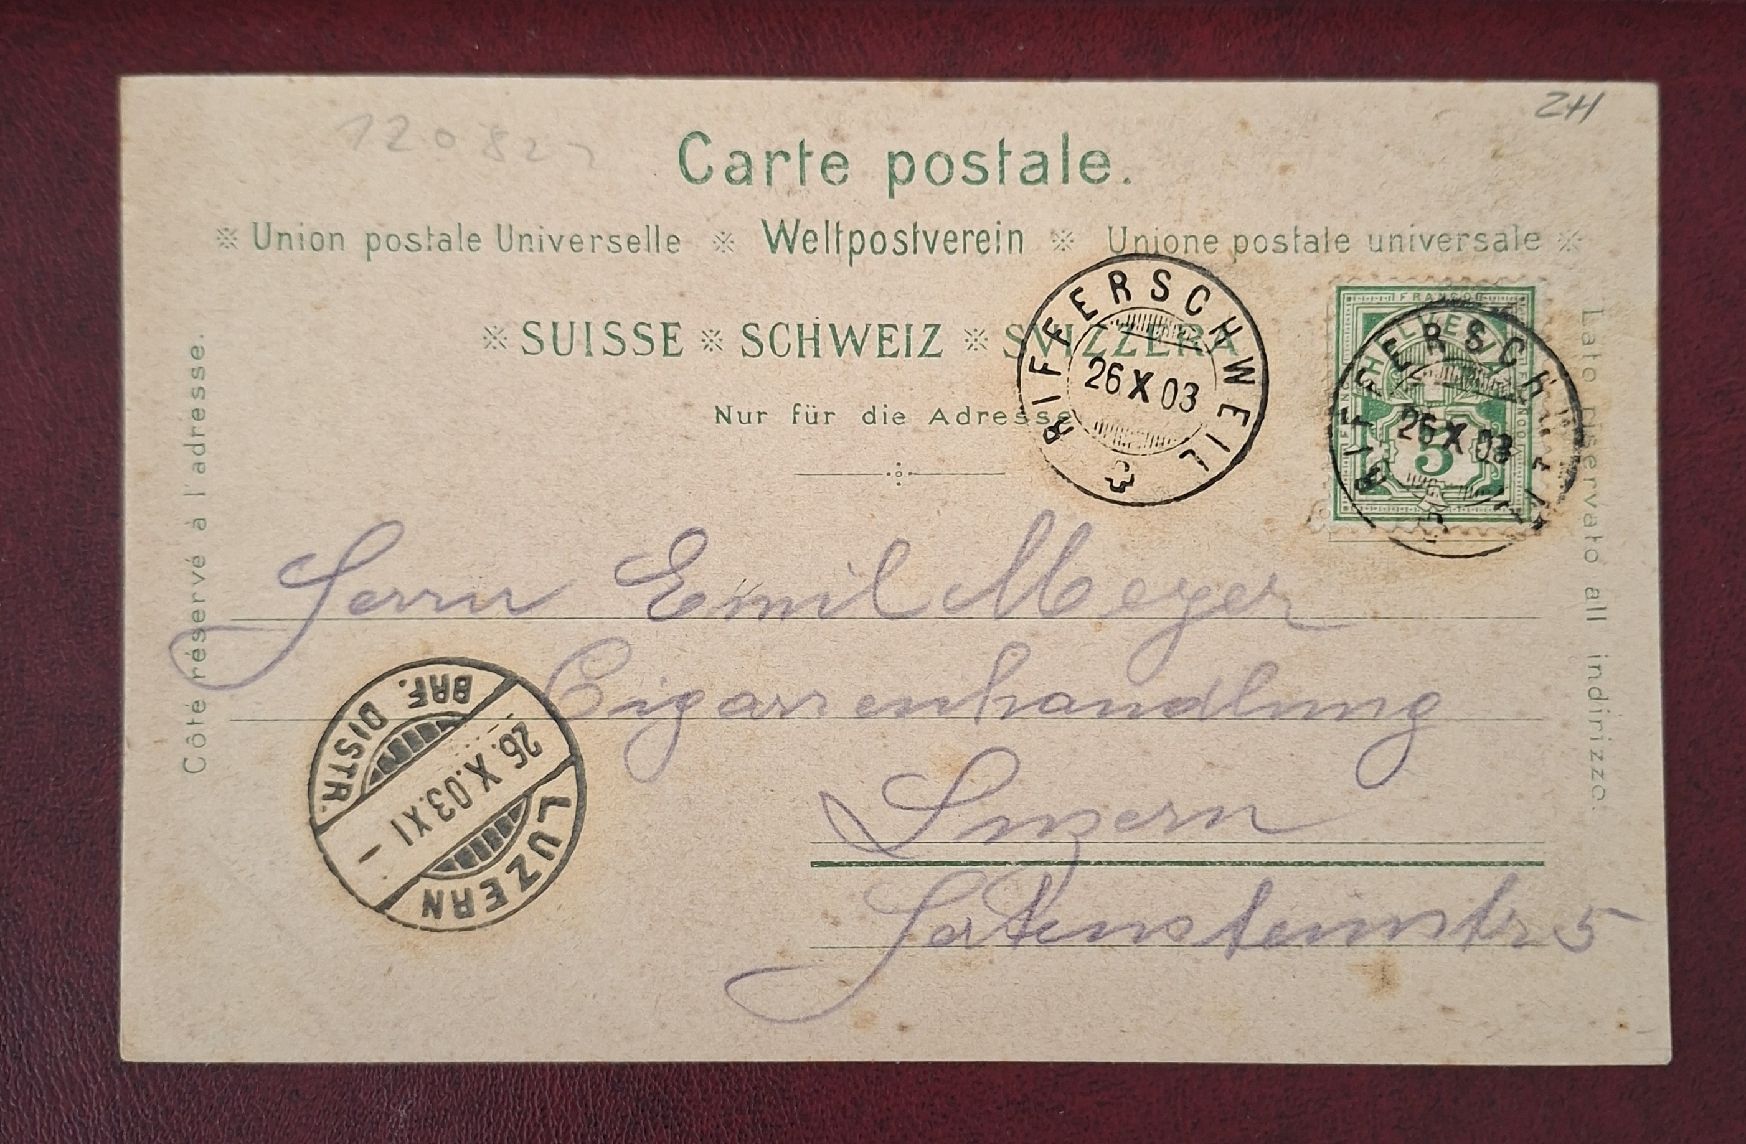 120822
ZH
Carte postale.
※ Union postale Universelle ※ Weltpostverein ※ Unione postale universale ※
※ SUISSE ※ SCHWEIZ ※ SVIZZERA
Nur für die Adresse
Côté réservé à l'adresse.
Lato riservato all indirizzo.
RIFFERSCHWEIL
26 X 03
FRANCO
HELVETIA
5
RIFFERSCHWEIL
26 X 03
Herrn Emil Meyer
Cigarrenhandlung
Luzern
Hertensteinstr 5
BRF. DISTR.
26. X. 03. XI -
LUZERN